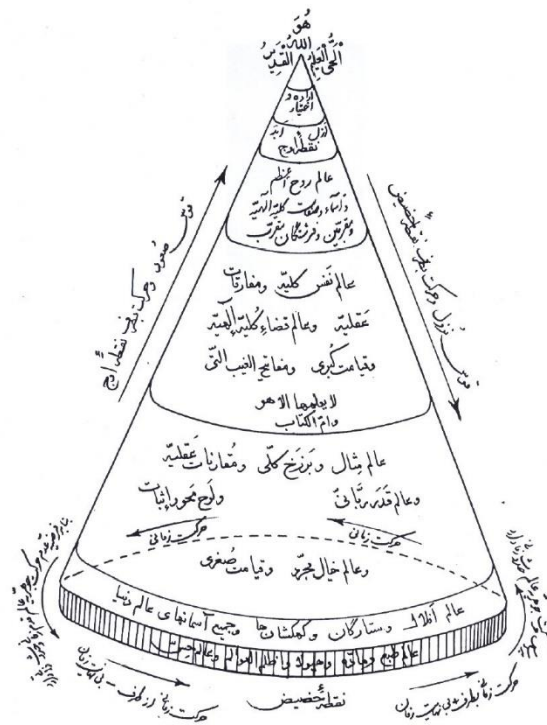 هُوَ
اللّٰهُ
الْحَیُّ الْعَلِیمُ الْقَدِیرُ
اراده و
اختیار
ازل ابد
نقطهٔ اوج
عالم روح اعظم
و اسماء و صفات کلیّهٔ الهیّه
و مقربّین و فرشتگان مقرب
عالم نَفس کلیّه و مفارقات
عَقلیّه و عالم قضاءِ کُلیّهٔ اِلٰهیّه
و قیامت کُبری و مفاتیح الغیب الّتی
لا یعلمها الا هو
و امّ الکتاب
عالم مِثال و بَرزَخ کلّی و مُقارنات عَقلیّه
و عالم قَدَر ربّانی و لَوح مَحو و اِثبات
حرکت زمانی
حرکت زمانی
و عالم خیال مجرّد و قیامت صُغری
عالم افلاک و ستارگان و کهکشان ها و جمیع آسمانهای عالم دنیا
عالم طبع و مادّه و هیولا و اظلم العوالم و عالم حیرت
نقطهٔ حضیض
قوس صعود و حرکت بطرف نقطهٔ اوج
قوس نزول و حرکت بطرف نقطهٔ حضیض
حرکت زمانی از طرف بی نهایت زمانی
حرکت زمانی بطرف بی نهایت زمانی